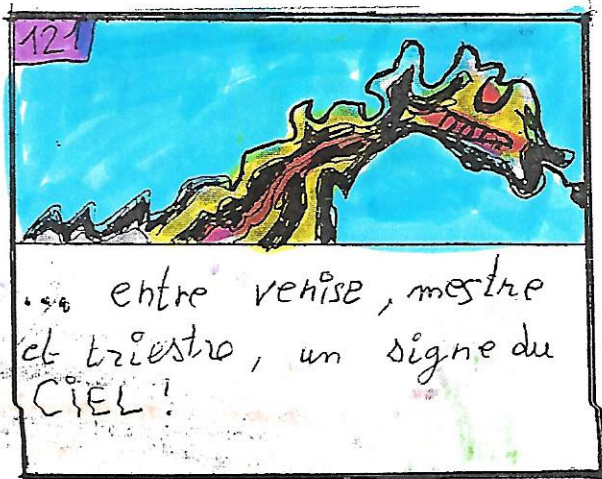 121
... entre venise, mestre
et triestre, un signe du
CiEL !